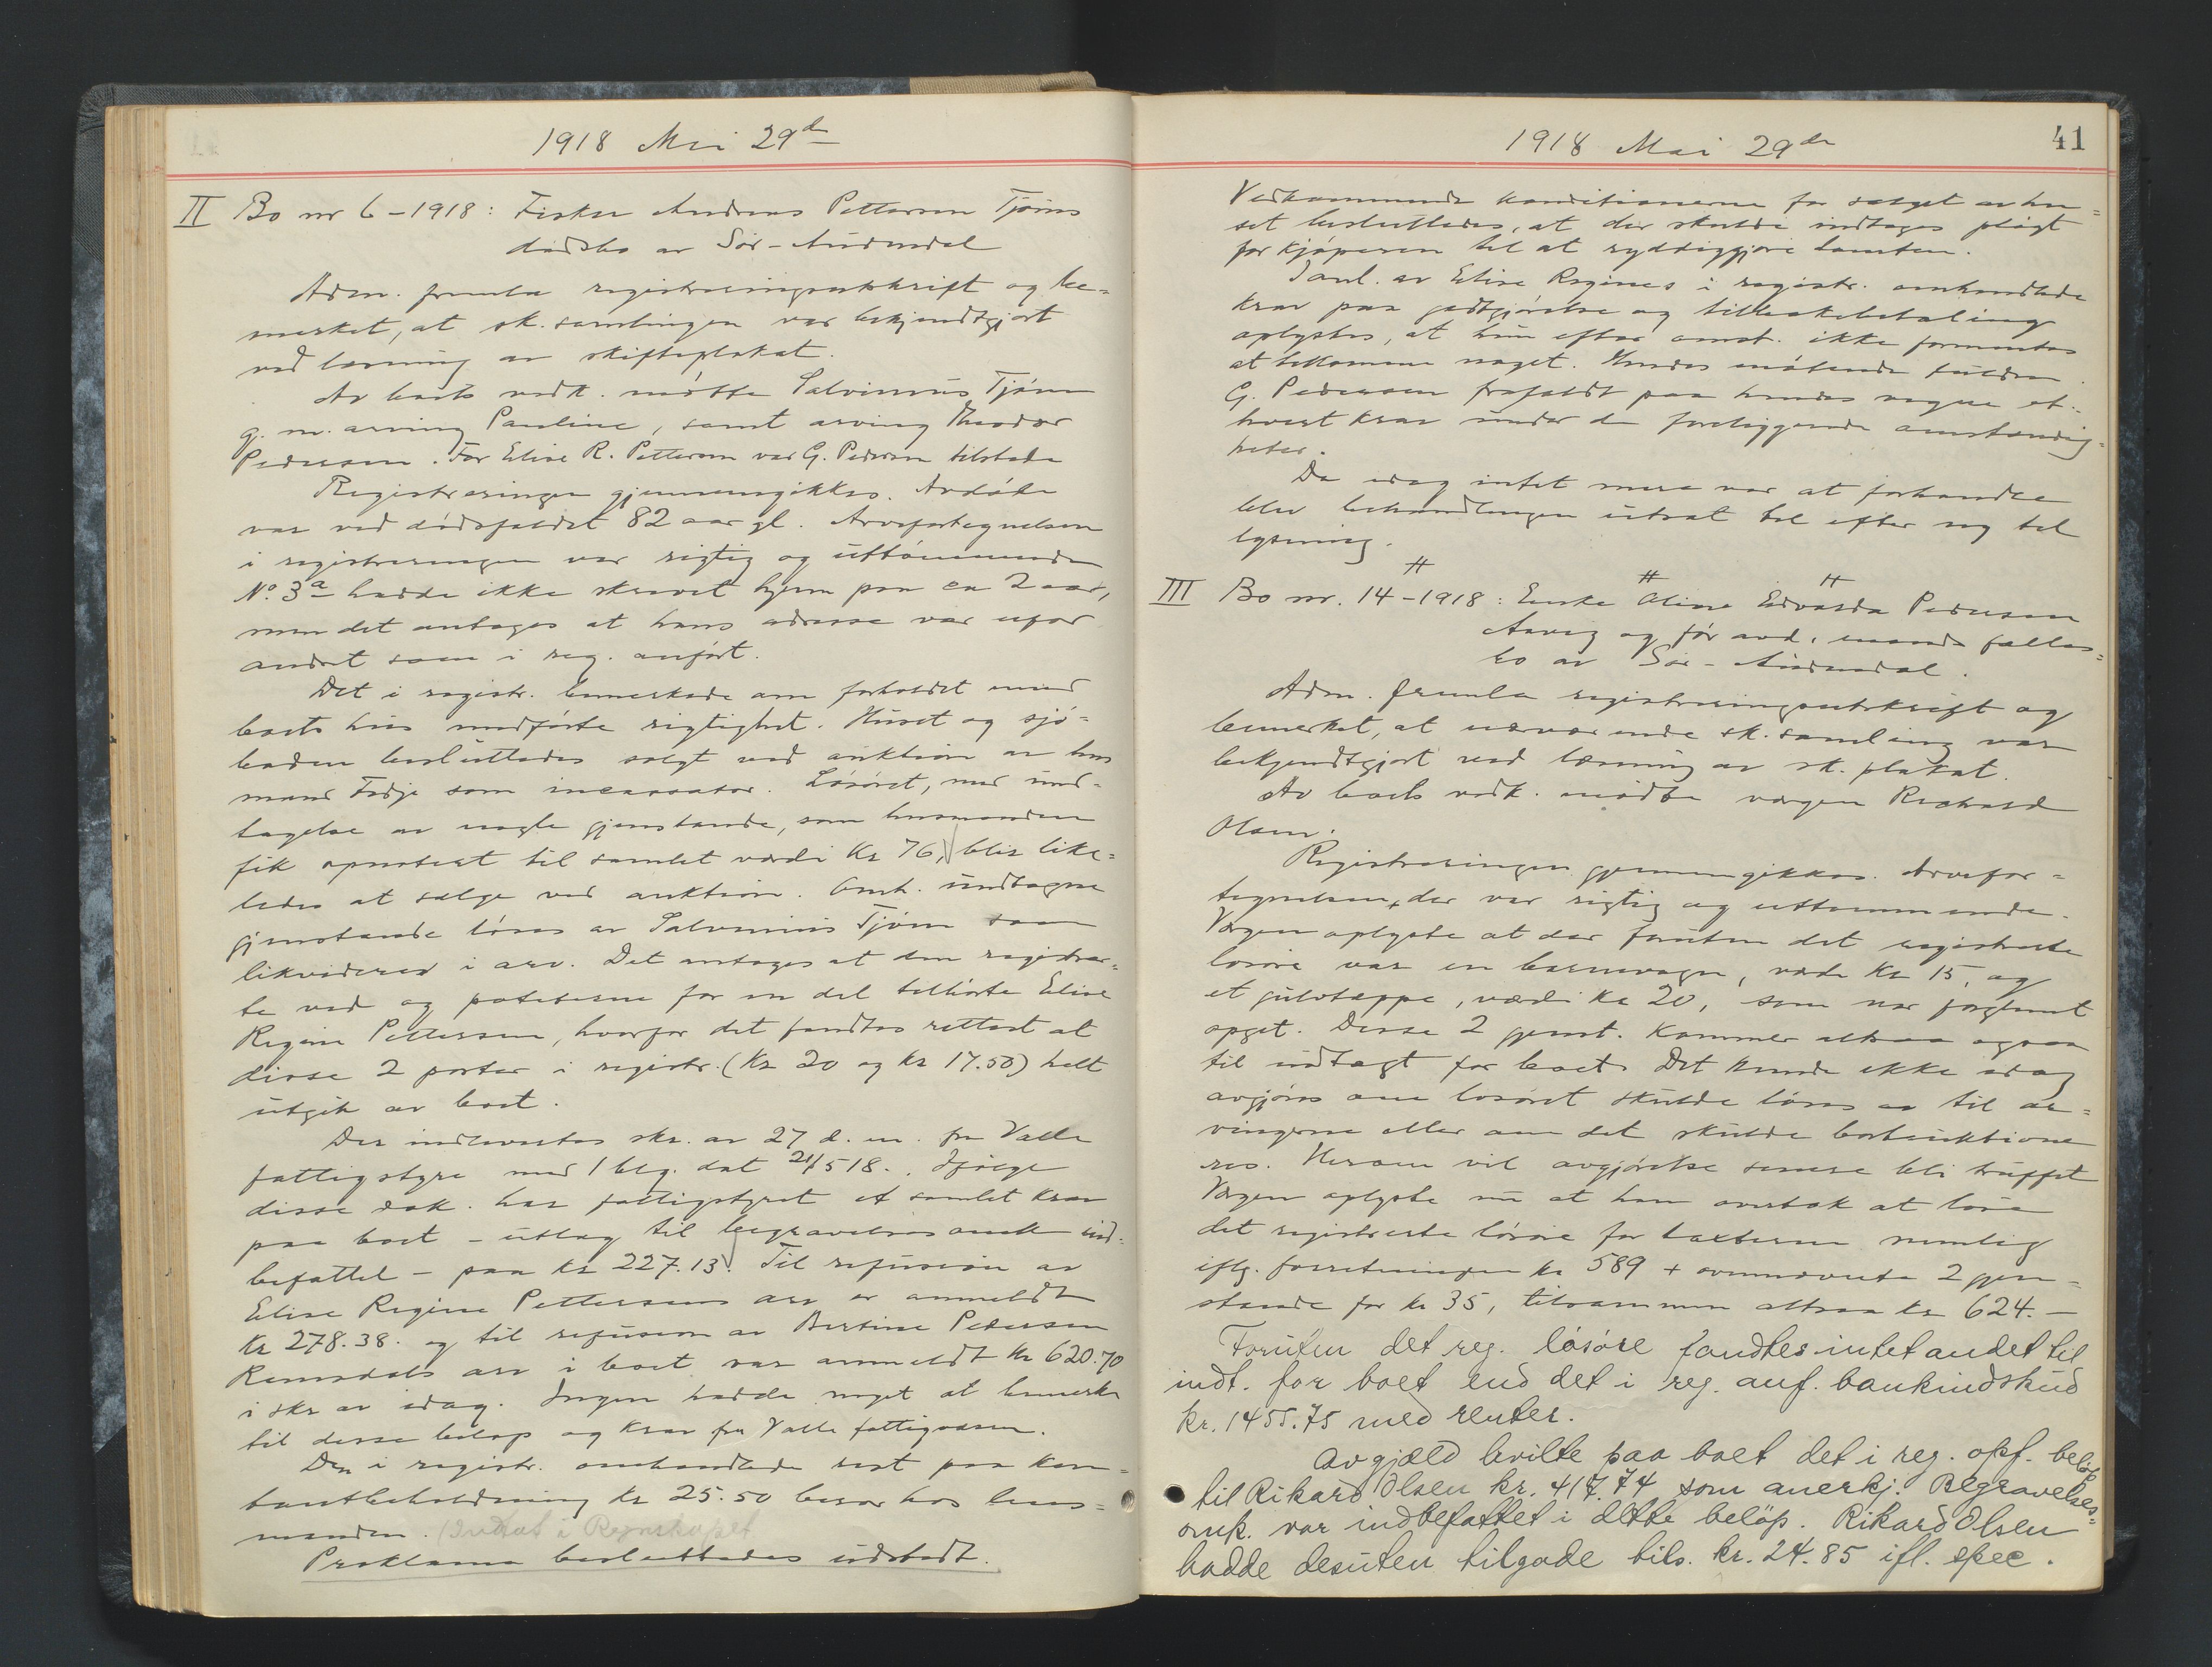 1918 Mai 29de
II Bo nr 6-1918: Fisker Andreas Pettersen Tjöms
dödsbo av Sör-Audnedal
Adm. fremla registreringsutskrift og be=
merket, at sk.samlingen var bekjendtgjort
ved læsning av skifteplakat.
Av boets vedk. mötte Salvinius Tjöm
g. m. arving Pauline, samt arving Theodor
Pedersen. For Elise R. Pettersen var G. Pedersen tilstede
Registreringen gjennemgikkes. Avdöde
var ved dödsfaldet 82 aar gl. Arvefortegnelsen
i registreringen var rigtig og uttömmende
No. 3a hadde ikke skrevet hjem paa ca 2 aar,
men det antages at hans adresse var ufor
andret som i reg. anfört.
Det i registr. bemerkede om forholdet med
boets hus medförte rigtighet. Huset og sjö=
boden besluttedes solgt ved auktion av lens
mand Fedje som incassator. Lösöret, med und=
tagelse av nogle gjenstande, som lensmanden
fik opnotert til samlet værdi Kr 76, blir like=
ledes at sælge ved auktion. Omh. undtagne
gjenstande löses av Salvinius Tjöm som
likvideres i arv. Det antages at den registrer=
te ved og poteterne for en del tilhörte Elise
Regine Pettersen, hvorfor det fandtes rettest at
disse 2 poster i registr. (Kr 20 og kr 17.50) helt
utgik av boet.
Der indleveredes skr. av 27 d. m. fra Valle
fattigstyre med 1 bleg. dat 21/5 18. Ifölge
disse dok. har fattigstyret et samlet krav
paa boet - utlæg til begravelsesomk. ind=
befattet - paa kr 227.13. Til refusion av
Elise Regine Pettersens arv er anmeldt
Kr 278.38. og til refusion av Bertine Pedersen
Ramsdals arv i boet var anmeldt Kr 620.70
i skr av idag. Ingen hadde noget at bemerke
til disse belöp og krav fra Valle fattigvæsen.
Den i registr. omhandlede rest paa kon=
tantbeholdning kr 25.50 beror hos lens=
manden. (Indtat i Regnskapet
Proklama besluttedes utstedt.
1918 Mai 29de
41
Vedkommende konditionerne for salget av hu=
set besluttedes, at der skulde indtages pligt
for kjöperen til at ryddiggjöre tomten.
Sönl. av Elise Regines i registr. omhandlede
krav paa godtgjörelse og tilbakebetaling
oplystes, at hun efter omst. ikke formentes
at tilkomme noget. Hendes mötende fuldm.
G. Pedersen frafaldt paa hendes vegne et=
hvert krav under de foreliggende omstændig=
heter.
Da idag intet mere var at forhandle
blev behandlingen utsat til efter ny til
lysning.
III Bo nr. 14-1918: Enke Oline Edvarda Pedersen
Aavig og för avd. mands fælles=
bo av Sör-Audnedal.
Adm. fremla registreringsutskrift og
bemerket, at nærværende sk.samling var
bekjendtgjort ved læsning av sk.plakat.
Av boets vedk. mödte vergen Richard
Olsen.
Registreringen gjennemgikkes. Arvefor=
tegnelsen, der var rigtig og uttömmende.
Vergen oplyste at der foruten det registrerte
lösöre var en barnevogn, værdi Kr 15, og
et gulvtæppe, værdi kr 20, som var forglemt
opget. Disse 2 gjenst. kommer altsaa ogsaa
til indtægt for boet. Det kunde ikke idag
avgjöres om lösöret skulde löses av til ar=
vingerne eller om det skulde bortauktione
res. Herom vil avgjörelse senere bli truffet
Vergen oplyste nu at han overtok at löse
det registrerte lösöre for taxterne nemlig
iflg. forretningen kr 589 + ovennævnte 2 gjen=
stande for kr 35, tilsammen altsaa kr 624.-
Foruten det reg. lösöre fandtes intet andet til
indt. for boet end det i reg. anf. bankindskud
kr. 1455.75 med renter.
Av gjæld hvilte paa boet det i reg. opf. belöp
til Rikard Olsen kr. 417.74 som anerkj. Begravelses=
omk. var indbefattet i dette belöp. Rikard Olsen
hadde desuten tilgode tils. kr. 24.85 ifl. spec.